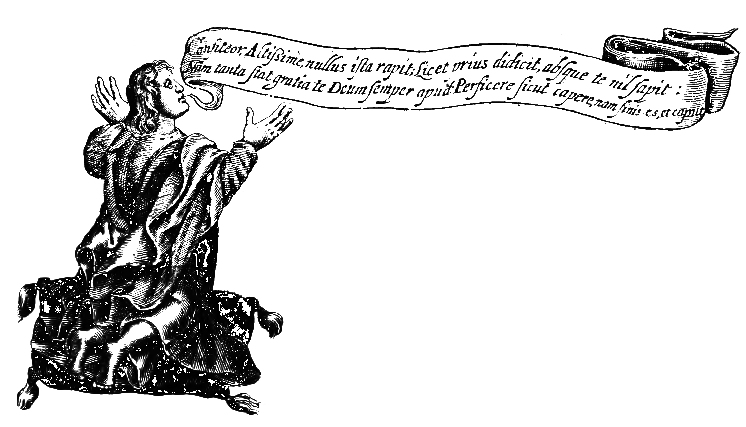 Confiteor, Altissime, nullus ista rapit, Licet prius didicit, absque te nil sapit :
Nam tanta stat gratia te Deum semper quod Perficere sicut capere, nam finis es, et caput